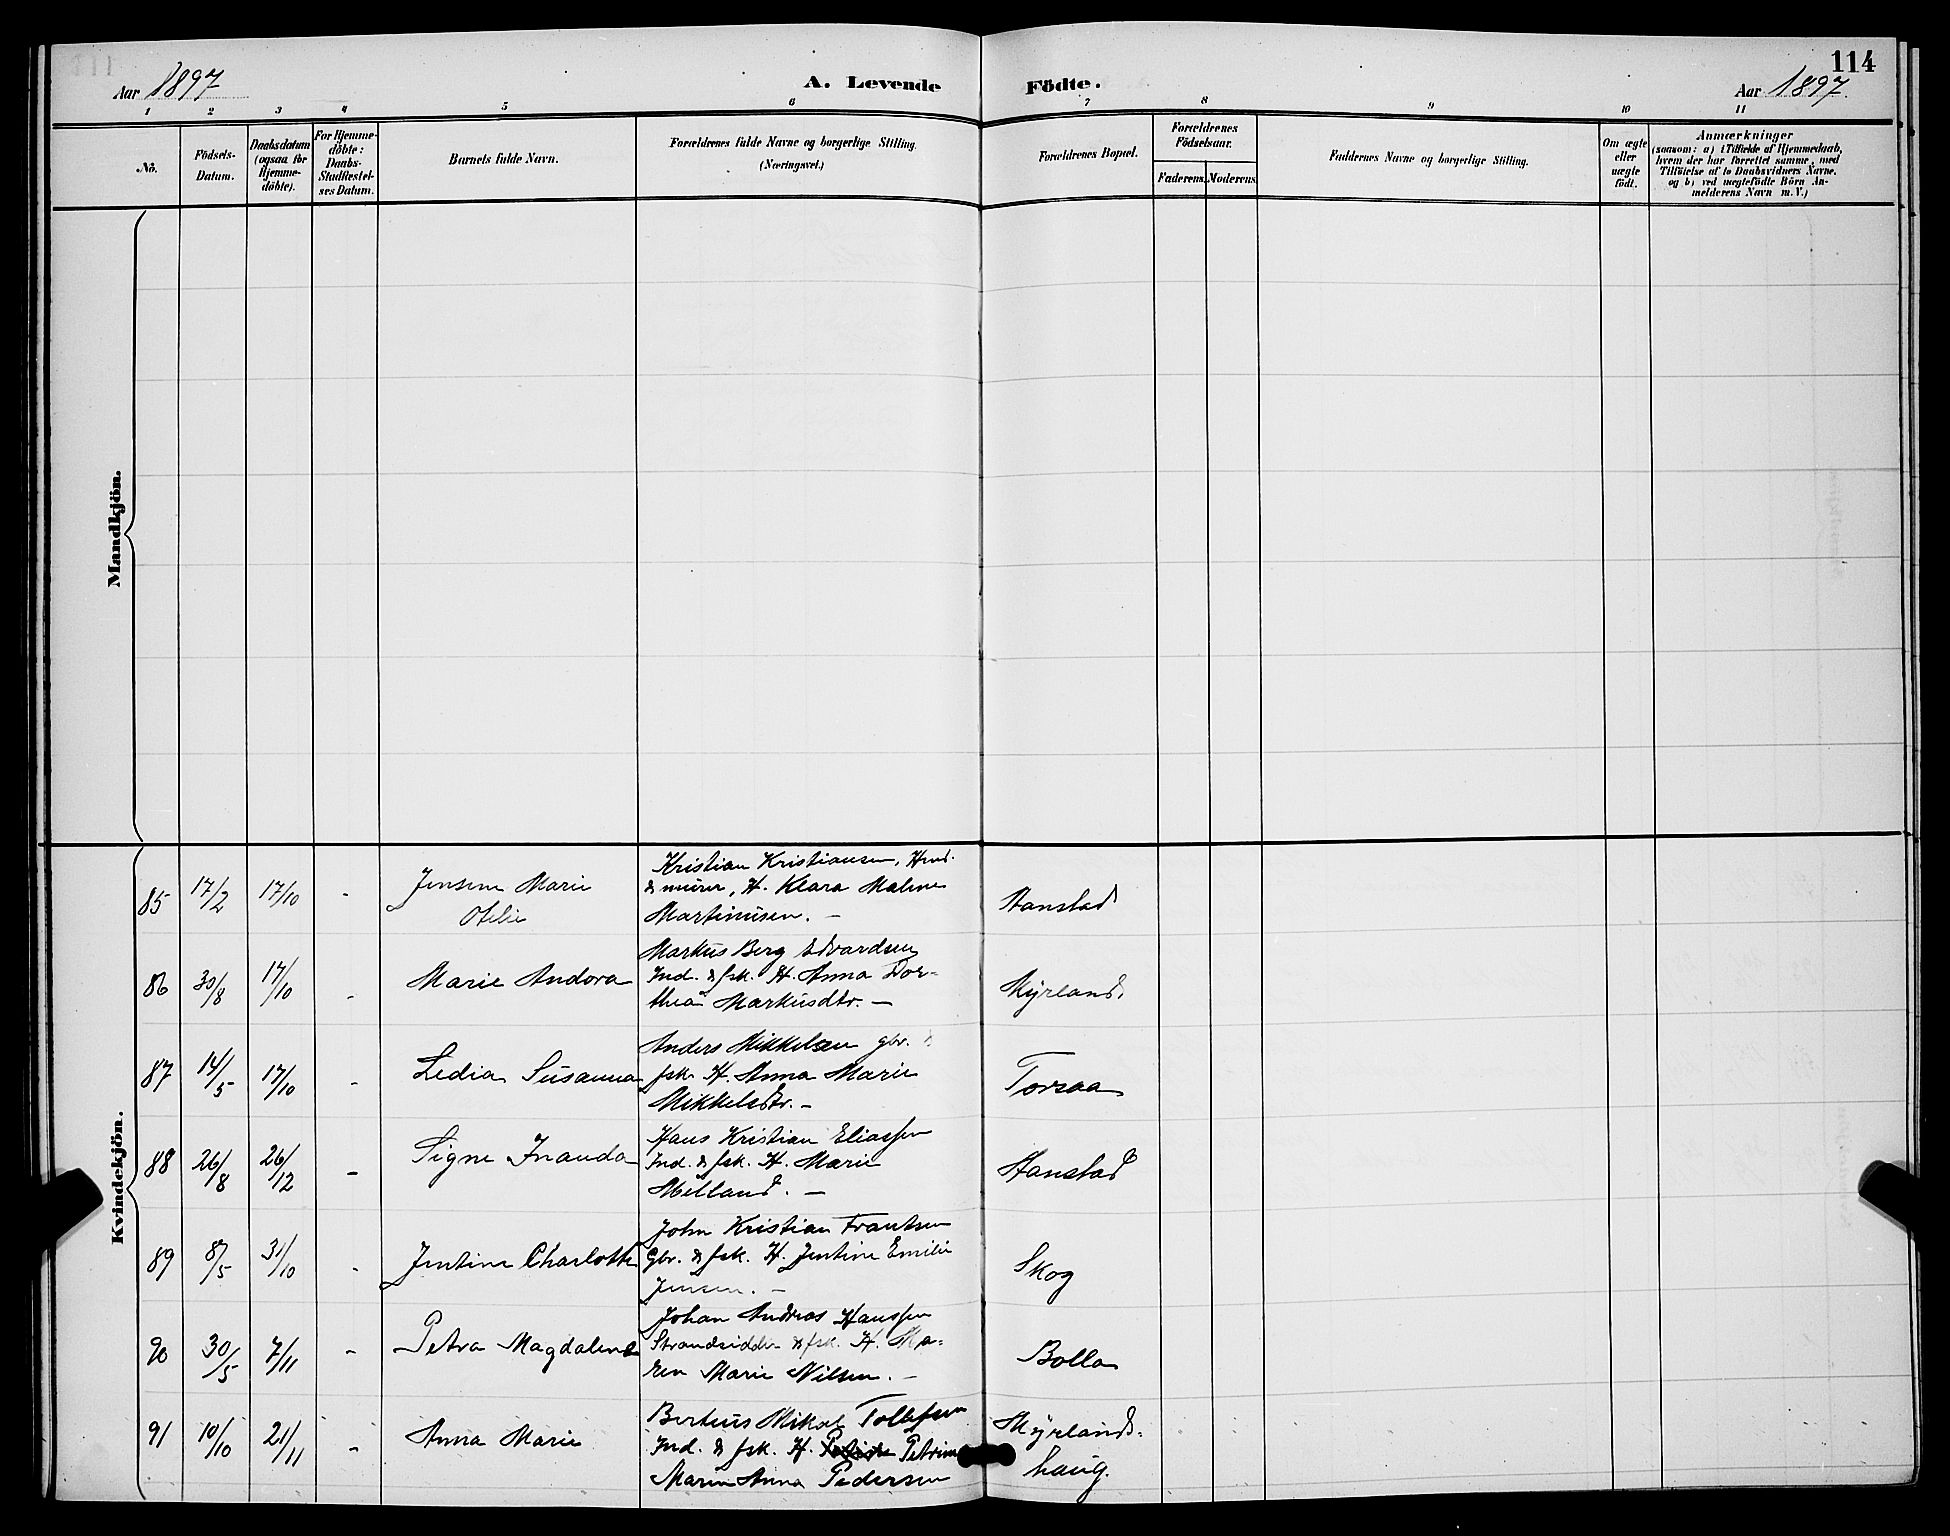 114
Aar 1897
A. Levende Födte.
Aar 1897.
1 2 3 4 5 6 7 8 9 10 11
No.
Födsels-
Datum.
Daabsdatum
(ogsaa for
Hjemme-
döbte).
For Hjemme-
döbte:
Daabs-
Stadfæstel-
ses Datum.
Barnets fulde Navn.
Forældrenes fulde Navne og borgerlige Stilling.
(Næringsvei.)
Forældrenes Bopæl.
Forældrenes
Födselsaar.
Faderens. Moderens.
Faddernes Navne og borgerlige Stilling.
Om ægte
eller
uægte
födt.
Anmærkninger
(saasom: a) i Tilfælde af Hjemmedaab,
hvem der har forrettet samme, med
Tilföielse af to Daabsvidners Navne,
og b) ved uægtefödte Börn An-
melderens Navn m. V.)
Mandkjön.
Kvindekjön.
85 17/2 17/10 -
Jensine Marie
Otelie
Kristian Kristiansen,
& murer, H. Klara Maline
Martinusen. —
Hanstad
86 30/8 17/10 -
Marie Andora
Markus Berg Edvardsen
Ind. & fsk. H. Anna Dor-
thea Markusdtr. —
Myrland.
87 14/5 17/10 -
Ledia Susanna
Anders Mikkelsen gbr.
fsk. H. Anna Marie
Mikkelsdtr. —
Torsaa
88 26/8 26/12 -
Signe Inanda
Hans Kristian Eliassen
Ind. & fsk. H. Marie
Milland. —
Hanstad
89 8/5 31/10 -
Jentine Charlotte
John Kristian Frantsen
Gbr. & fsk. H. Jentine Emilie
Jensen. —
Skog
90 30/5 7/11 -
Petra Magdalene
Johan Andreas Hanssen
Strandsidder & fsk. H. Ma-
ren Marie Nilsen. —
Bolla
91 10/10 21/11 -
Anna Marie
Berteus Mikal Tollefsen
Ind. & fsk. H. Petrine
Marie Anna Pedersen
Myrlands-
haug.